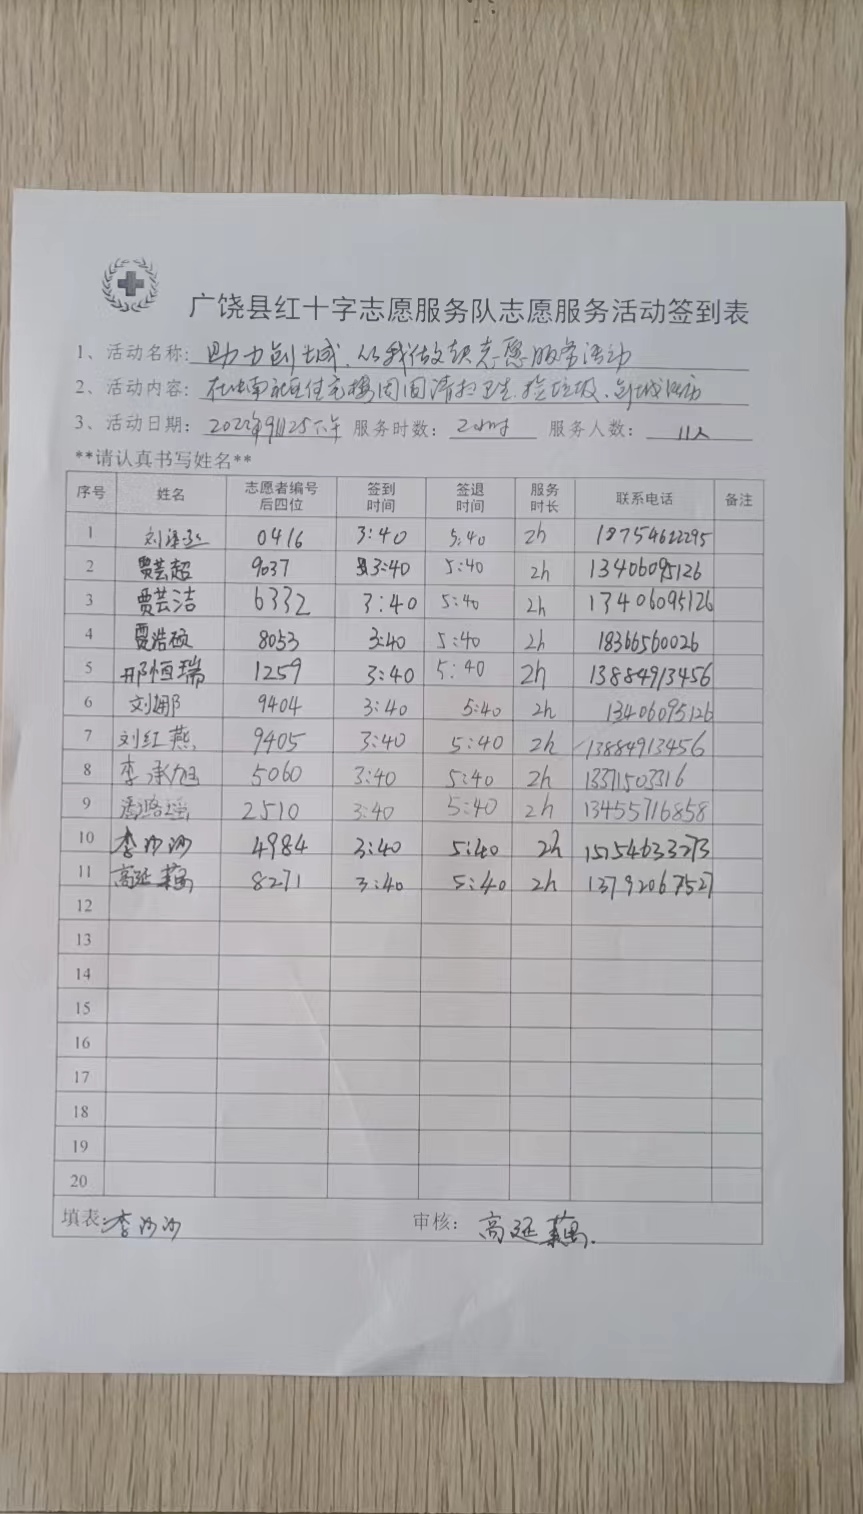 广饶县红十字志愿服务队志愿服务活动签到表
1、活动名称: 助力创城、从我做起志愿服务活动
2、活动内容: 社区住宅楼周围清扫卫生、捡垃圾、创城活动
3、活动日期: 2022年9月25下午 服务时数: 2小时 服务人数: 11人
**请认真书写姓名**
序号 姓名 志愿者编号后四位 签到时间 签退时间 服务时长 联系电话 备注
1 刘 0416 3:40 5:40 2h 18754622295
2 贾芸超 9037 3:40 5:40 2h 13406095126
3 贾芸洁 6332 3:40 5:40 2h 13406095126
4 贾浩硕 8053 3:40 5:40 2h 18366560026
5 邢恒瑞 1259 3:40 5:40 2h 13884913456
6 刘娜 9404 3:40 5:40 2h 13406095126
7 刘红燕 9405 3:40 5:40 2h 13884913456
8 李承旭 5060 3:40 5:40 2h 13371503316
9 潘璐瑶 2510 3:40 5:40 2h 13455716858
10 李沙沙 4984 3:40 5:40 2h 15154633273
11 高延藕 8271 3:40 5:40 2h 13792067527
12
13
14
15
16
17
18
19
20
填表: 李沙沙 审核: 高延藕